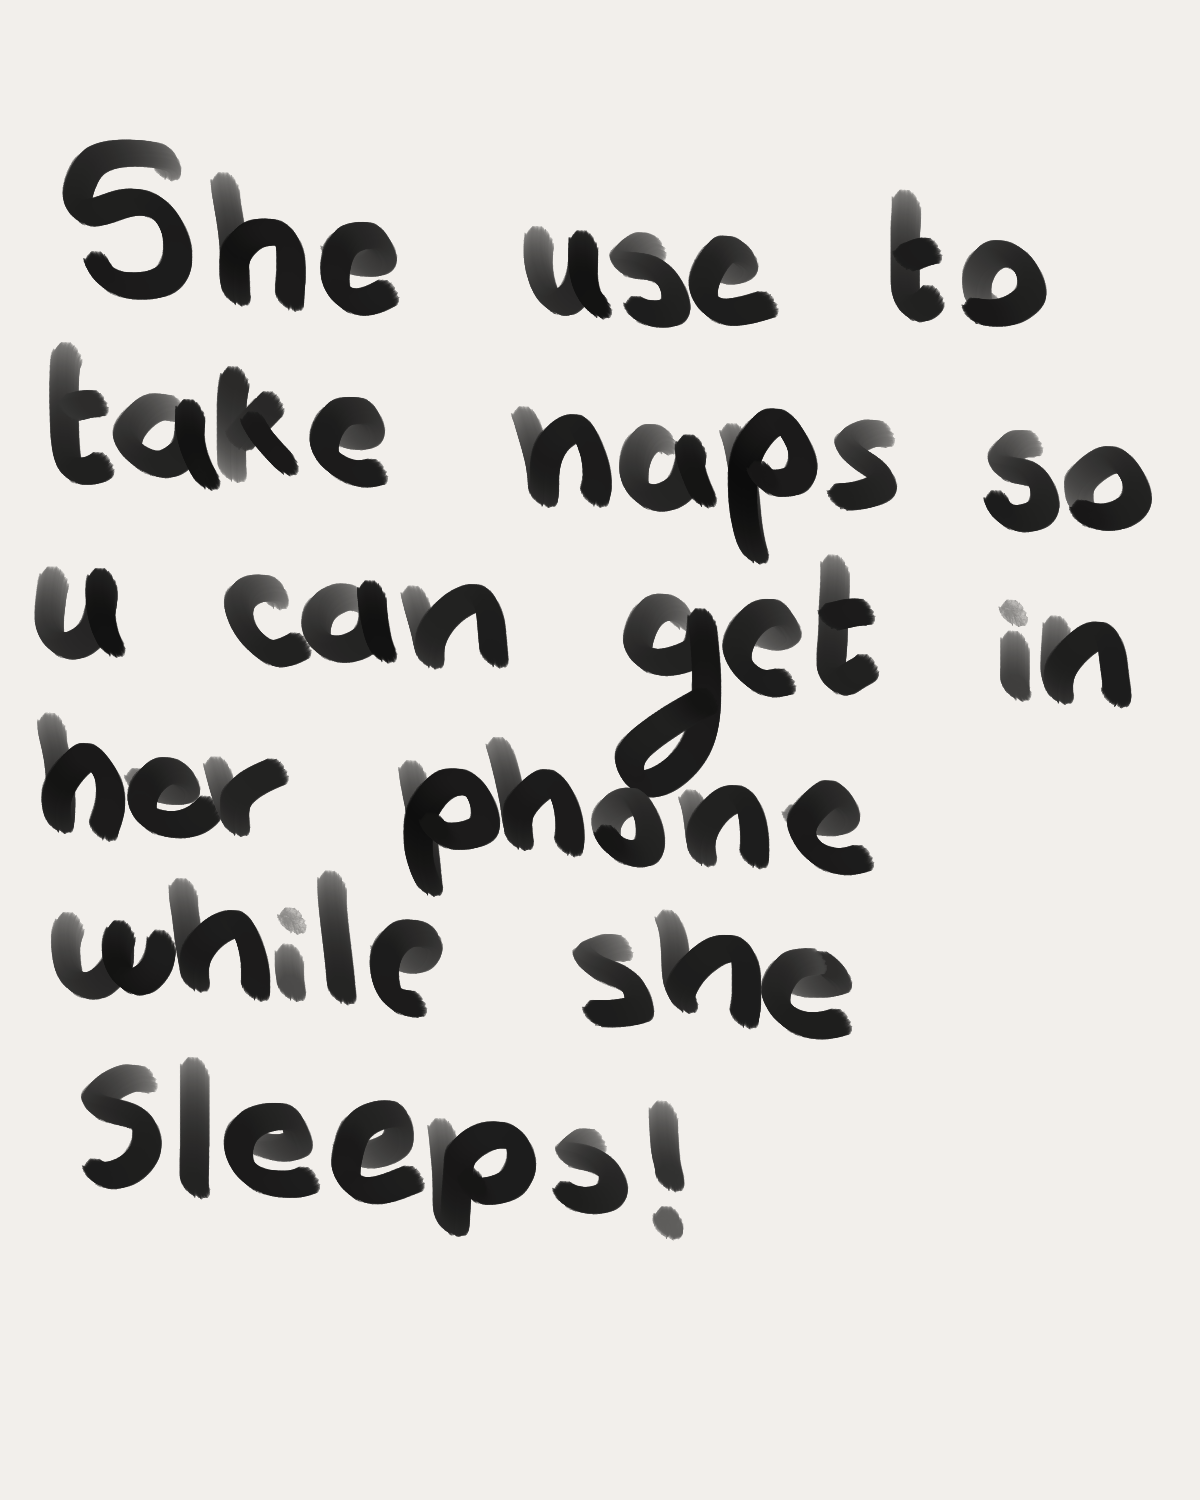 She use to
take naps so
u can get in
her phone
while she
Sleeps!